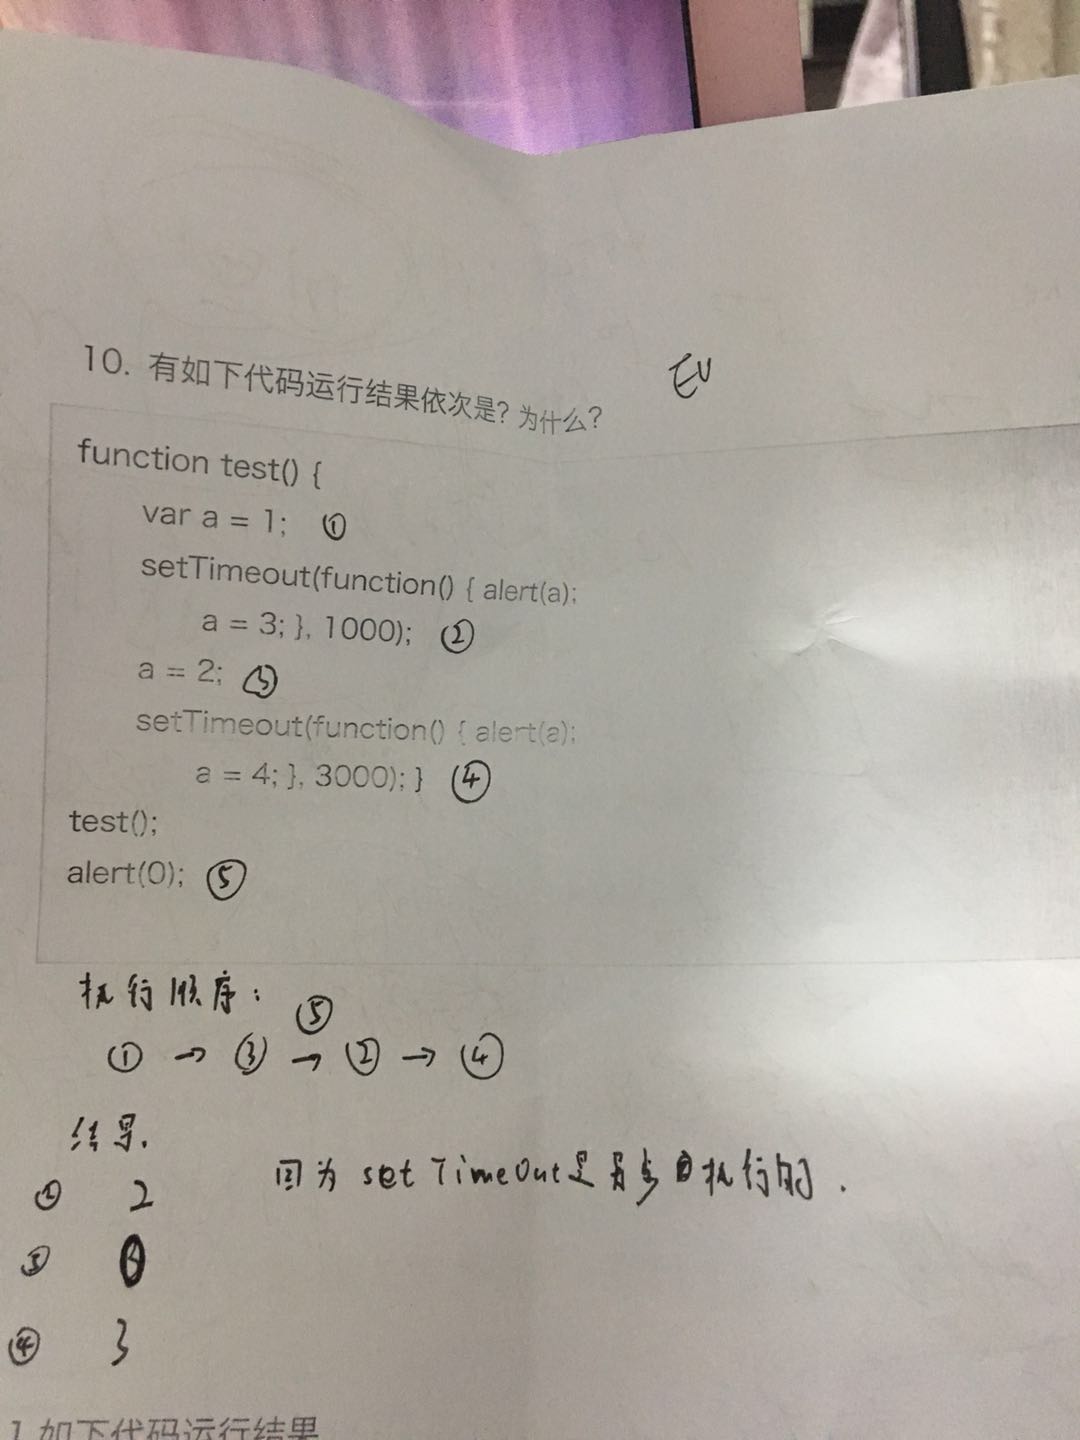 10. 有如下代码运行结果依次是? 为什么?
function test() {
var a = 1; ①
setTimeout(function() { alert(a);
a = 3; }, 1000); ②
a = 2; ③
setTimeout(function() { alert(a);
a = 4; }, 3000); } ④
test();
alert(0); ⑤
执行顺序:
⑤
① → ③ → ② → ④
结果.
因为 setTimeOut是异步执行的.
② 2
⑤ 0
④ 3
1.如下代码运行结果